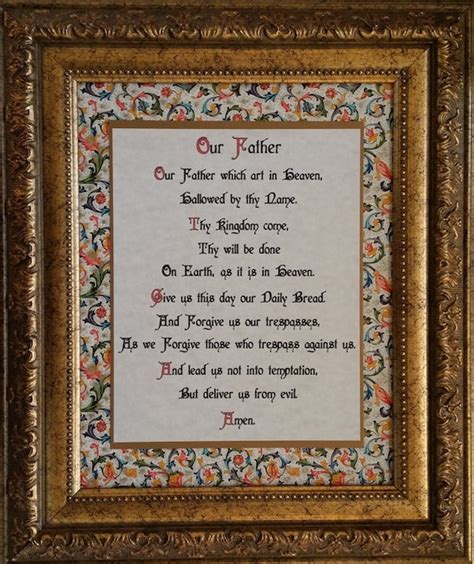 Our Father
Our Father which art in Heaven,
Hallowed by thy Name.
Thy Kingdom come,
Thy will be done
On Earth, as it is in Heaven.
Give us this day our Daily Bread.
And Forgive us our trespasses,
As we Forgive those who trespass against us.
And lead us not into temptation,
But deliver us from evil.
Amen.